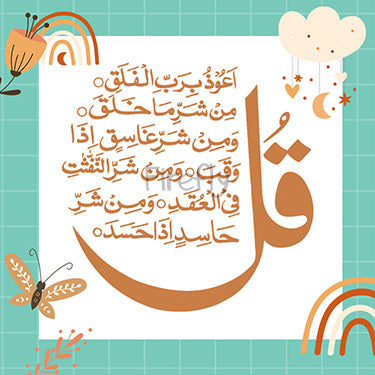 قُل
اَعُوْذُ بِرَبِّ الْفَلَقِ○
مِنْ شَرِّ مَا خَلَقَ○
وَمِنْ شَرِّ غَاسِقٍ اِذَا
وَقَبَ○ وَمِنْ شَرِّ النَّفّٰثٰتِ
فِی الْعُقَدِ○ وَمِنْ شَرِّ
حَاسِدٍ اِذَا حَسَدَ○
Firefly